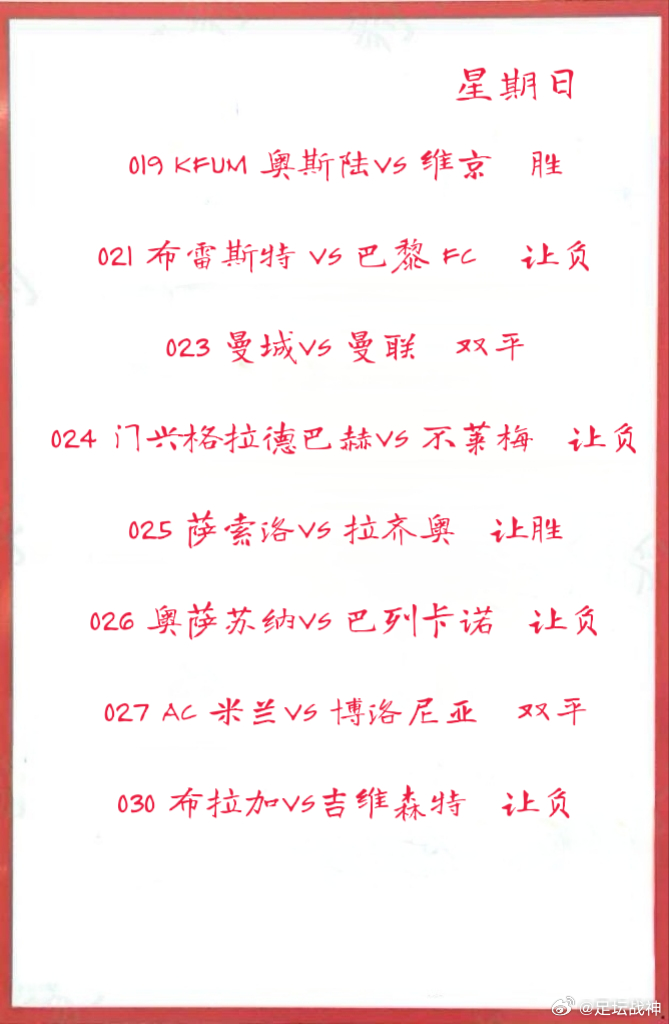 星期日
019 KFUM 奥斯陆VS 维京 胜
021 布雷斯特 VS 巴黎 FC 让负
023 曼城VS 曼联 双平
024 门兴格拉德巴赫VS 不莱梅 让负
025 萨索洛VS 拉齐奥 让胜
026 奥萨苏纳VS 巴列卡诺 让负
027 AC 米兰VS 博洛尼亚 双平
030 布拉加VS吉维森特 让负
@足坛战神